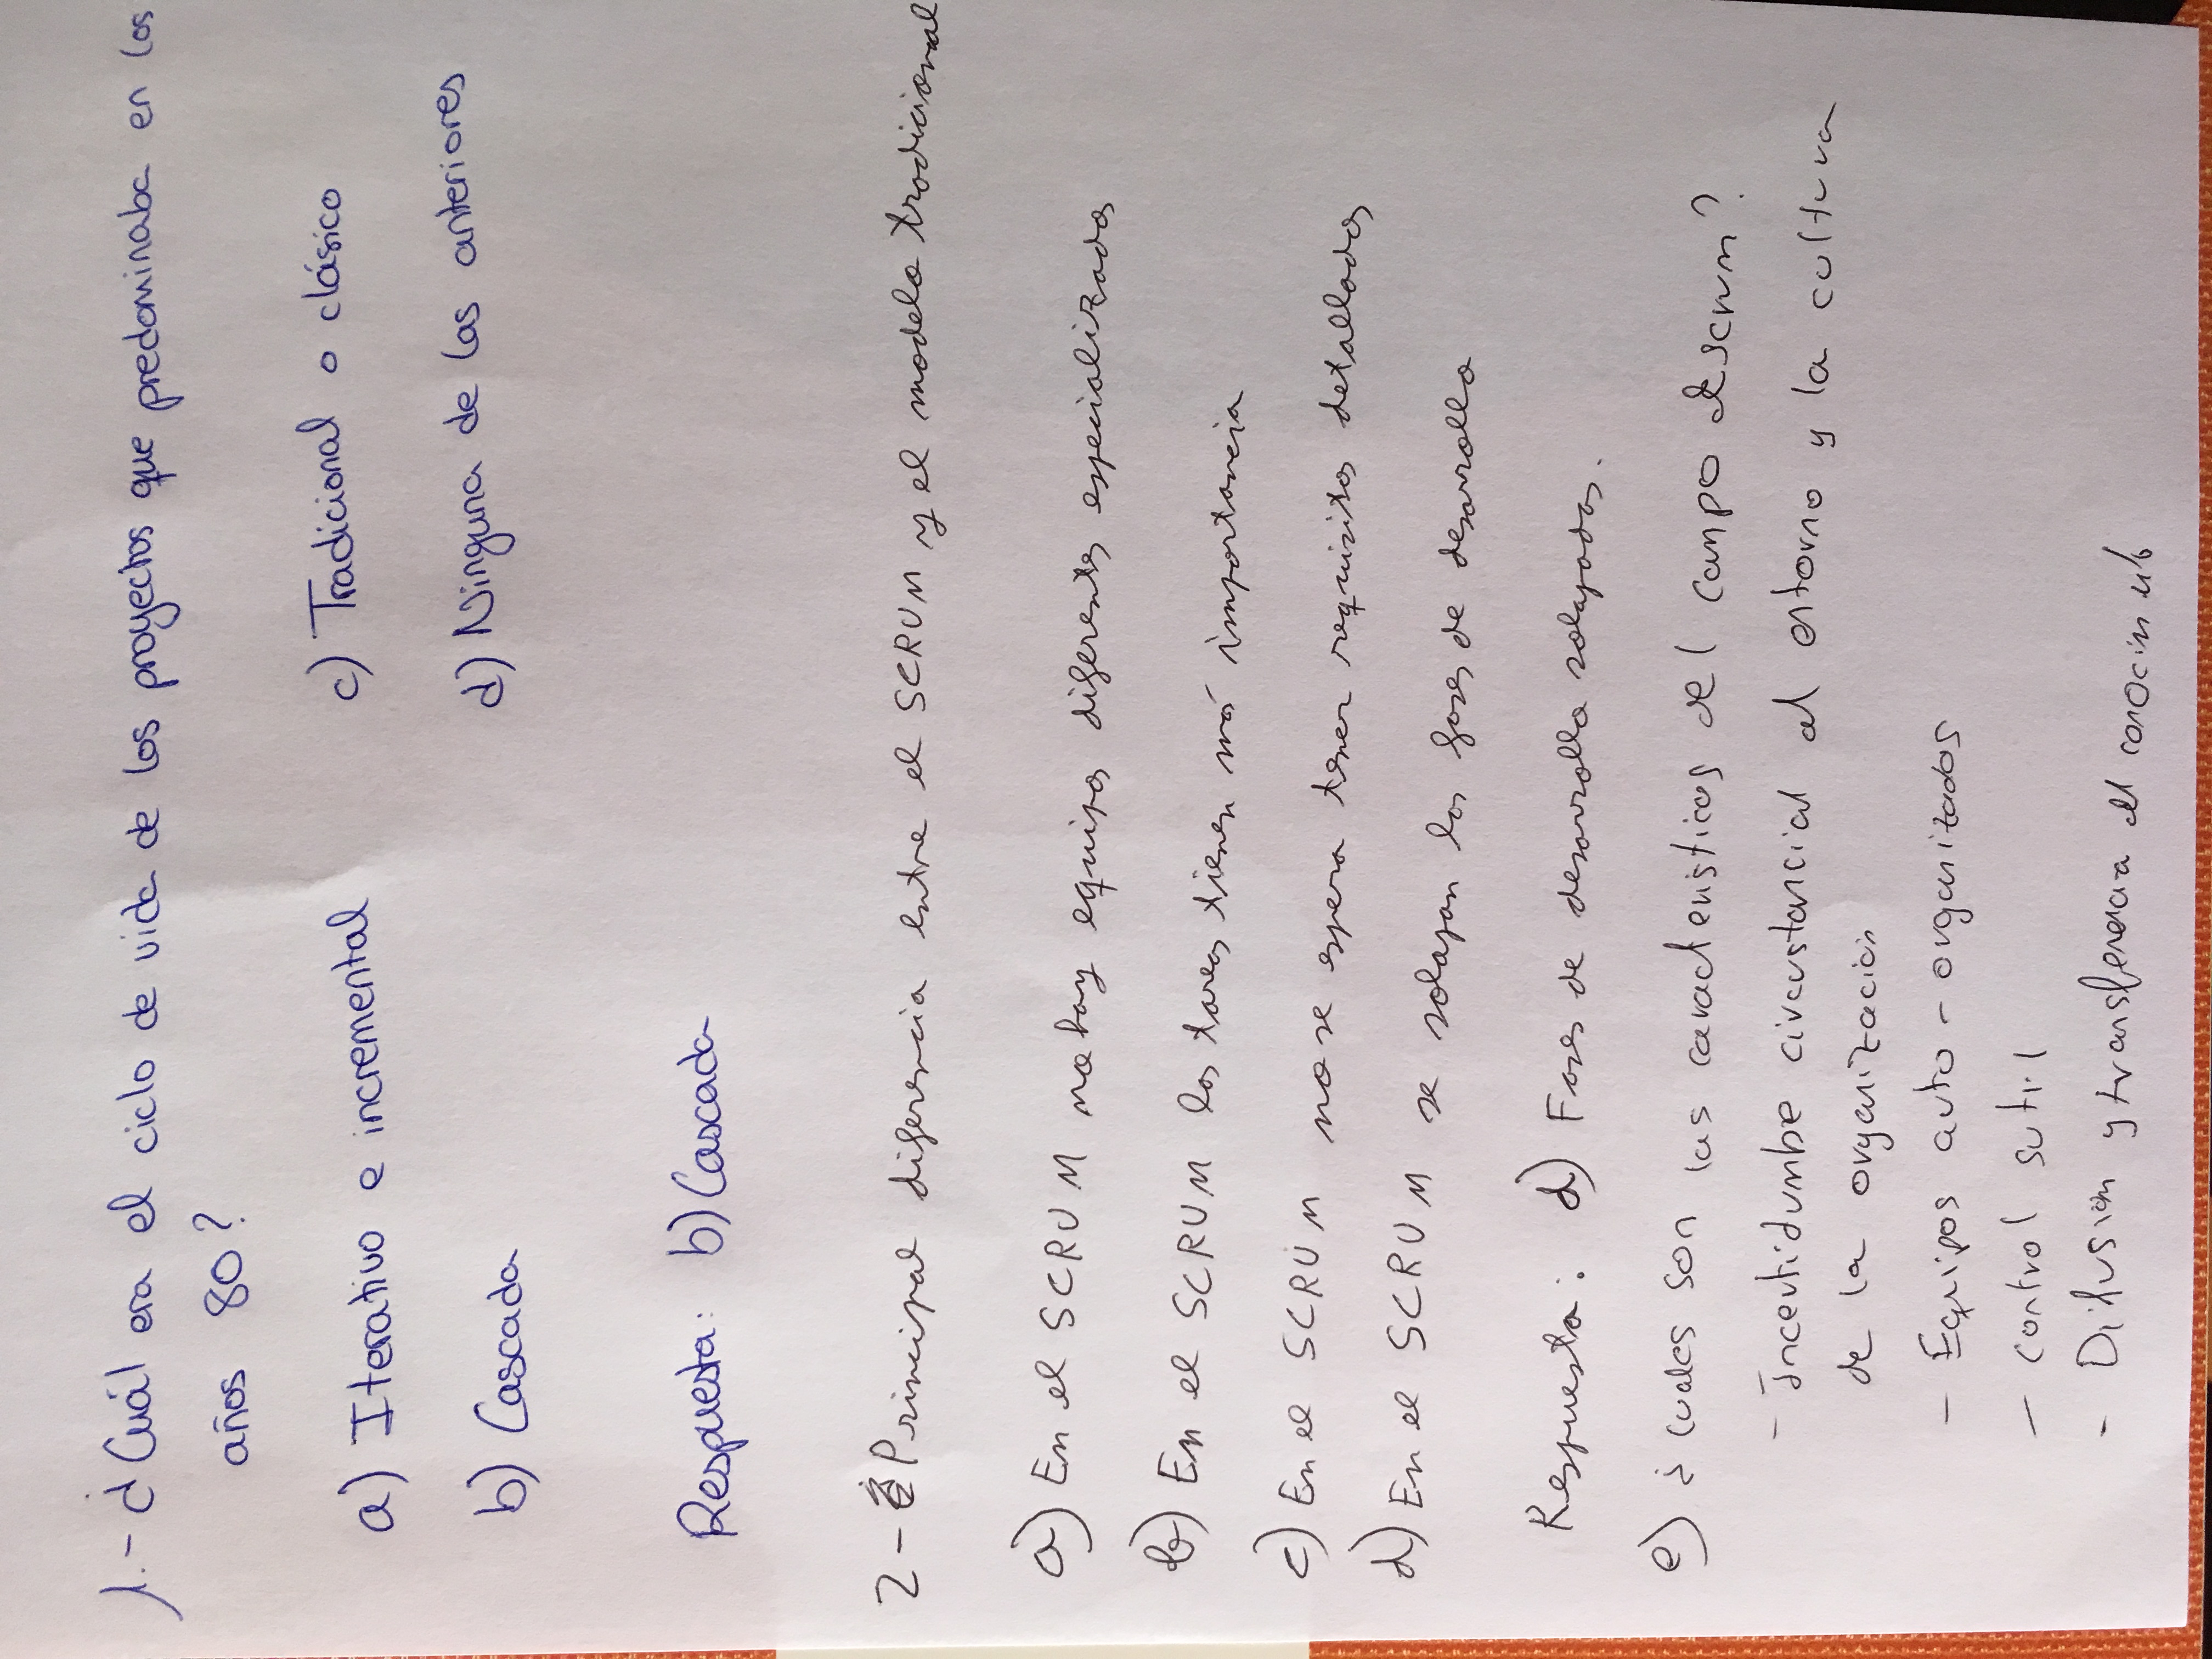 1.- ¿Cuál era el ciclo de vida de los proyectos que predominaba en los
años 80?
a) Iterativo e incremental
b) Cascada
c) Tradicional o clásico
d) Ninguna de las anteriores
Respuesta: b) Cascada
2- ¿Principal diferencia entre el SCRUM y el modelo tradicional
a) En el SCRUM no hay equipos diferentes especializados
b) En el SCRUM las tareas tienen más importancia
c) En el SCRUM no se espera tener requisitos detallados
d) En el SCRUM se solapan las fases de desarrollo
Respuesta: d) Fases de desarrollo solapadas.
e) ¿Cuales son las caracteristicas del campo de scrum?
- Incertidumbe circustancial al entorno y la cultura
de la organización
- Equipos auto-organizados
- control sutil
- Difusión y transferencia del conocimiento